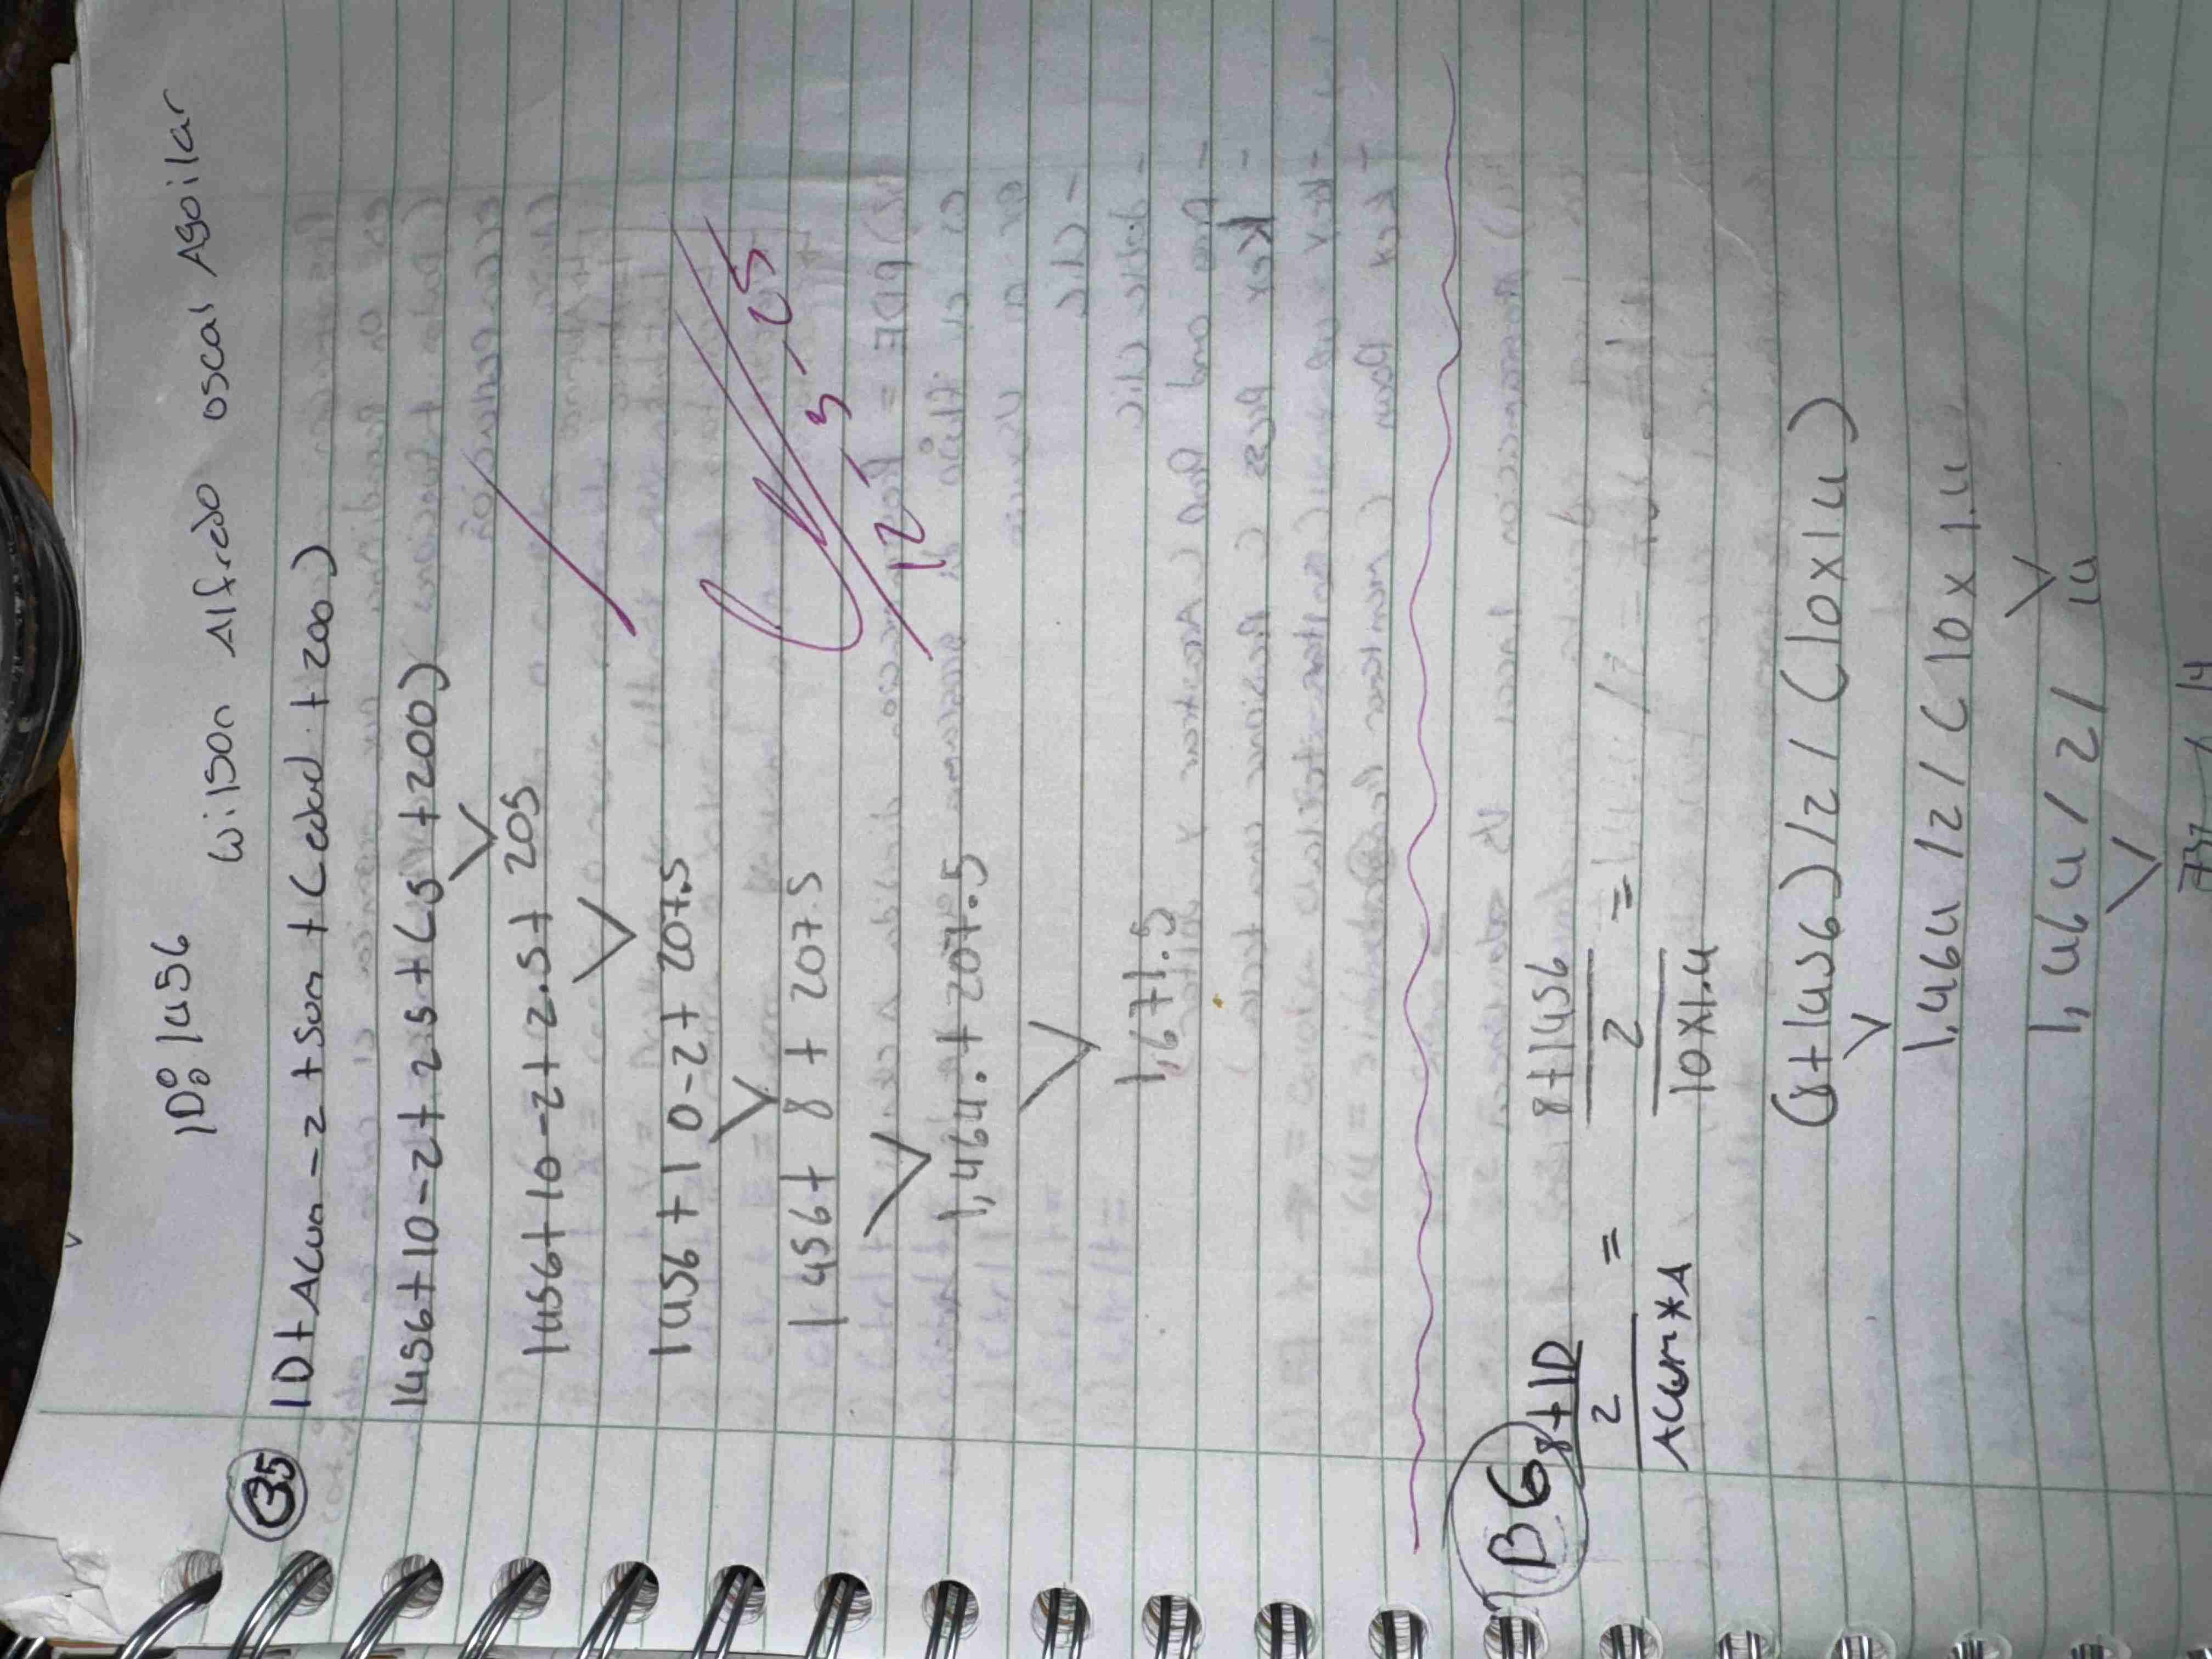 ID: 1456
Wilson Alfredo oscal Agoilar
B5
ID + Acum - 2 + Sum + (edad + 200)
1456 + 10 - 2 + 2.5 + (5 + 200)
1456 + 10 - 2 + 2.5 + 205
1456 + 10 - 2 + 207.5
1456 + 8 + 207.5
1,464. + 207.5
1,671.5
12-3-25
B6
8+ID = 8+1456 =
2 2
Acum*A 10x1.4
(8+1456)/2/(10x14)
1,464/2/(10x1.4
1,464/2/14